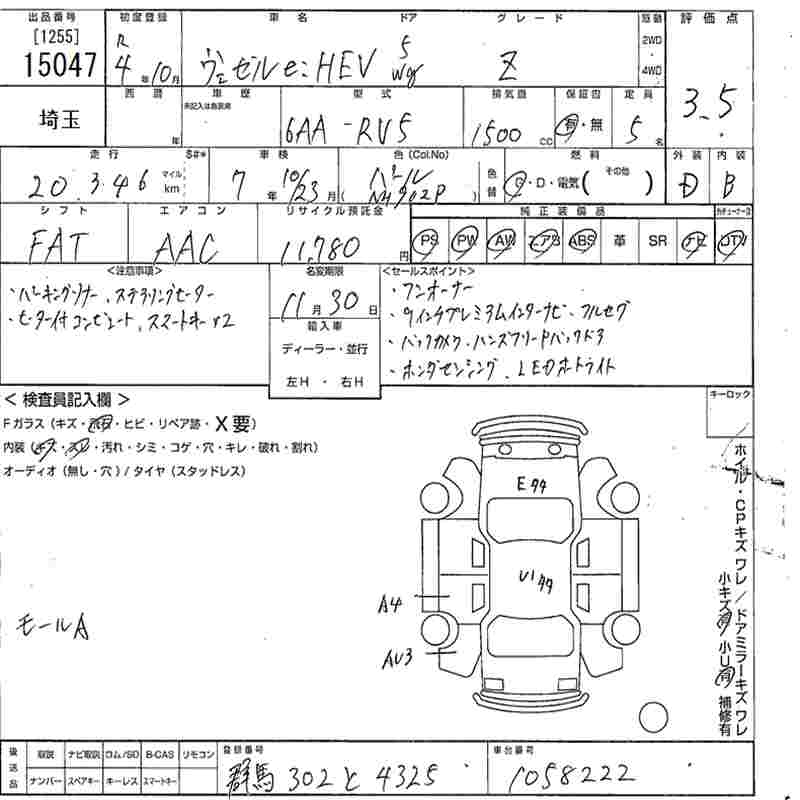 出品番号 初度登録 車名 ドア グレード 駆動 評価点
[1255] R 5 2WD
15047 4年10月 ヴェゼルe:HEV wg Z 4WD 3.5
西暦 車歴 型式 排気量 保証書 定員
埼玉 未記入は自家用 6AA-RV5 1500cc 有・無 5名
年
走行 $#* 車検 色(Col.No) 燃料 外装 内装
20.346 マイル km 7年 10/23月 パール (NH902P 色替 G・D・電気( その他 ) D B
シフト エアコン リサイクル預託金 純正装備品
FAT AAC 11,780円 PS PW AW エアB ABS 革 SR ナビ TV
<注意事項> 名変期限 <セールスポイント>
・パーキングソナー、ステアリングヒーター 11月30日 ・ワンオーナー
・ヒーター付コンビシート、スマートキーx2 ・9インチプレミアムインターナビ・フルセグ
輸入車 ・バックカメラ・ハンズフリーパワーバックドア
ディーラー・並行 ・ホンダセンシング、LEDオートライト
左H・右H
<検査員記入欄> キーロック
Fガラス(キズ・飛石・ヒビ・リペア跡・X要)
内装(キズ・スレ・汚れ・シミ・コゲ・穴・キレ・破れ・割れ)
オーディオ(無し・穴)/タイヤ(スタッドレス)
E
U1
A4
モールA
AU3
ホイル・CPキズ ワレ/ドアミラーキズ ワレ
小キズ有 小U有 補修有
後送品 取説 ナビ取説 ロム/SD B-CAS リモコン 登録番号 車台番号
ナンバー スペアキー キーレス スマートキー 群馬 302と4325 1058222